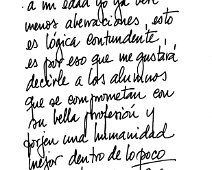 a mi edad yo ya veré
menos aberraciones, esto
es lógica contundente,
es por eso que me gustará
decirle a los alumnos
que se comprometan con
su bella profesión y
forjen una humanidad
mejor dentro de lo poco